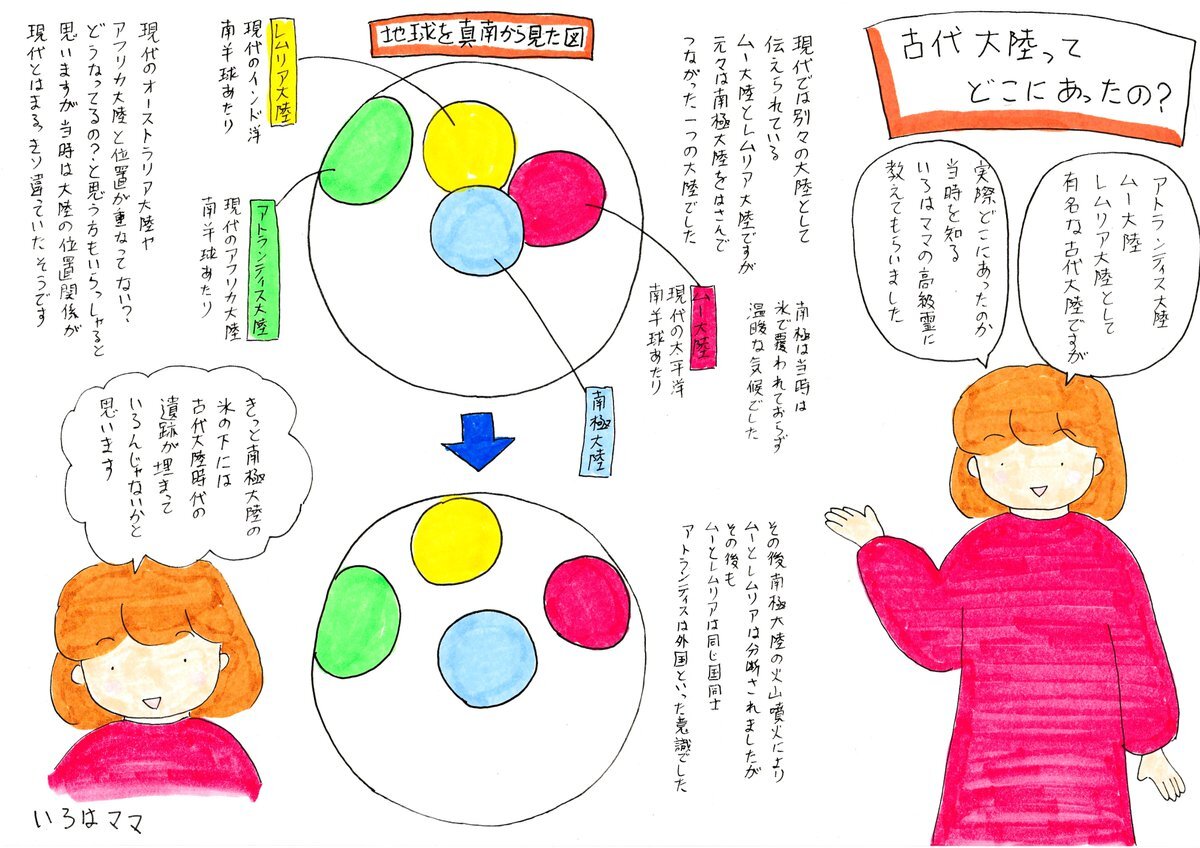 古代大陸って
どこにあったの？
アトランティス大陸
ムー大陸
レムリア大陸として
有名な古代大陸ですが
実際どこにあったのか
当時を知る
いろはママの高級霊に
教えてもらいました
現代では別々の大陸として
伝えられている
ムー大陸とレムリア大陸ですが
元々は南極大陸をはさんで
つながった一つの大陸でした
南極は当時は
氷で覆われておらず
温暖な気候でした
地球を真南から見た図
ムー大陸
現代の太平洋
南半球あたり
南極大陸
レムリア大陸
現代のインド洋
南半球あたり
アトランティス大陸
現代のアフリカ大陸
南半球あたり
その後南極大陸の火山噴火により
ムーとレムリアは分断されましたが
その後も
ムーとレムリアは同じ国同士
アトランティスは外国といった意識でした
現代のオーストラリア大陸や
アフリカ大陸と位置が重なってない？
どうなってるの？と思う方もいらっしゃると
思いますが当時は大陸の位置関係が
現代とはまるっきり違っていたそうです
きっと南極大陸の
氷の下には
古代大陸時代の
遺跡が埋まって
いるんじゃないかと
思います
いろはママ